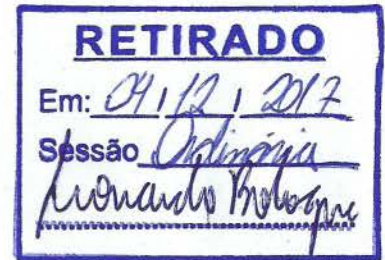 RETIRADO
Em: 04 / 12 / 2017
Sessão Ordinária
Leonardo